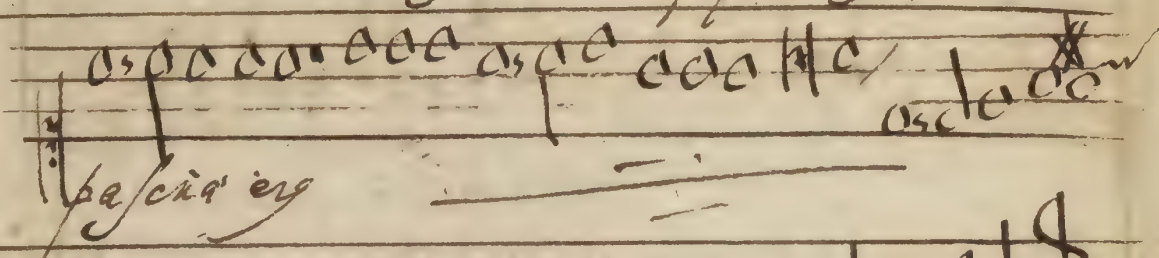 pascha erg